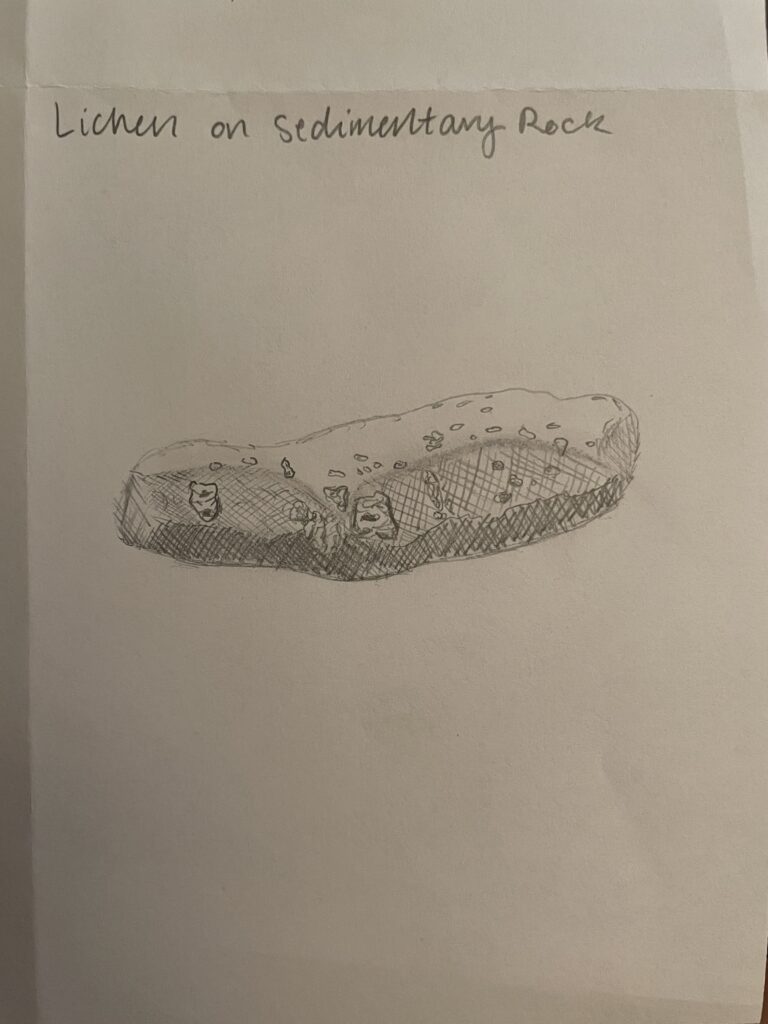 Lichen on Sedimentary Rock